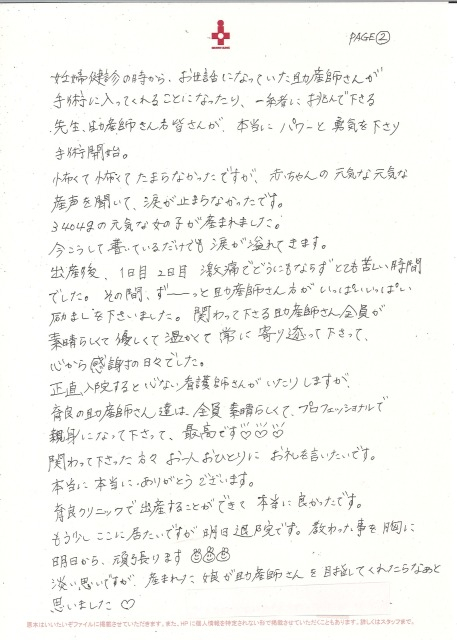 PAGE②
妊婦健診の時から、お世話になっていた助産師さんが
手術に入ってくれることになったり、一緒に挑んで下さる
先生、助産師さん方皆さんが、本当にパワーと勇気を下さり
手術開始。
怖くて怖くてたまらなかったですが、赤ちゃんの元気な元気な
産声を聞いて、涙が止まらなかったです。
3404gの元気な女の子が産まれました。
今こうして書いているだけでも涙が溢れてきます。
出産後、1日目2日目激痛でどうにもならずとても苦しい時間
でした。その間、ず〜〜っと助産師さん方がいっぱいいっぱい
励ましを下さいました。関わって下さる助産師さん全員が
素晴らしくて優しくて温かくて常に寄り添って下さって、
心から感謝の日々でした。
正直、入院すると心ない看護師さんがいたりしますが、
奈良の助産師さん達は、全員素晴らしくて、プロフェッショナルで
親身になって下さって、最高です♡♡♡
関わって下さった方々お一人おひとりにお礼を言いたいです。
本当に本当に、ありがとうございます。
奈良クリニックで出産することができて本当に良かったです。
もう少しここに居たいですが明日退院です。教わった事を胸に
明日から、頑張ります
淡い思いですが、産まれた娘が助産師さんを目指してくれたらなぁと
思いました♡
原本はいいたいぞファイルに掲載させていただきます。また、HPに個人情報を特定されない形で掲載させていただくこともあります。詳しくはスタッフまで。